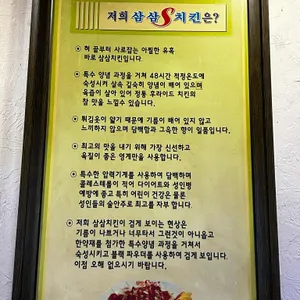 저희 삼삼S치킨은?
혀 끝부터 사로잡는 아찔한 유혹
바로 삼삼치킨입니다.
특수 양념 과정을 거쳐 48시간 적정온도에
숙성시켜 살속 깊숙히 양념이 배어 있으며
육즙이 살아 있어 정통 후라이드 치킨의
참 맛을 느낄수 있습니다.
튀김옷이 얇기 때문에 기름이 배어 있지 않고
느끼하지 않으며 담백함과 그윽한 향이 일품입니다.
최고의 맛을 내기 위해 가장 신선하고
육질이 좋은 영계만을 사용합니다.
특수한 압력기계를 사용하여 담백하며
콜레스테롤이 적어 다이어트와 성인병
예방에 좋고 특히 어린이 건강은 물론
성인들의 술안주로 최고를 자부 합니다.
저희 삼삼치킨이 검게 보이는 현상은
기름이 나쁘거나 너무타서 그런것이 아니옵고
한약재를 첨가한 특수양념 과정을 거쳐서
숙성시키고 블랙 파우더를 사용하여 검게 보입니다.
이점 오해 없으시기 바랍니다.